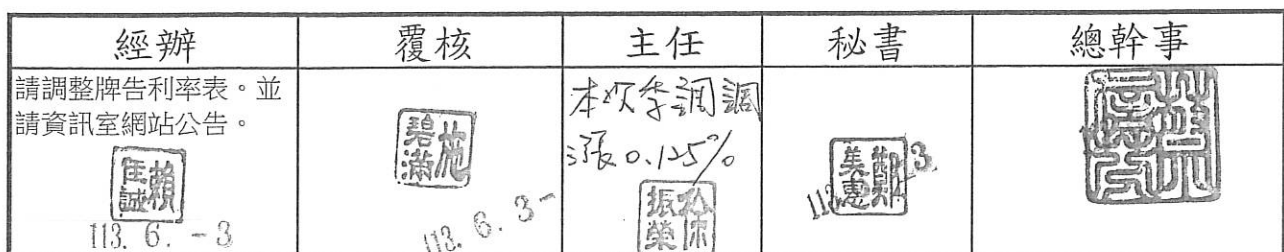 經辦
覆核
主任
秘書
總幹事
請調整牌告利率表。並
請資訊室網站公告。
賴佳誠
113. 6. -3
施碧滿
113. 6. 3-
本次季調調
漲0.125%
振榮
鄭美惠